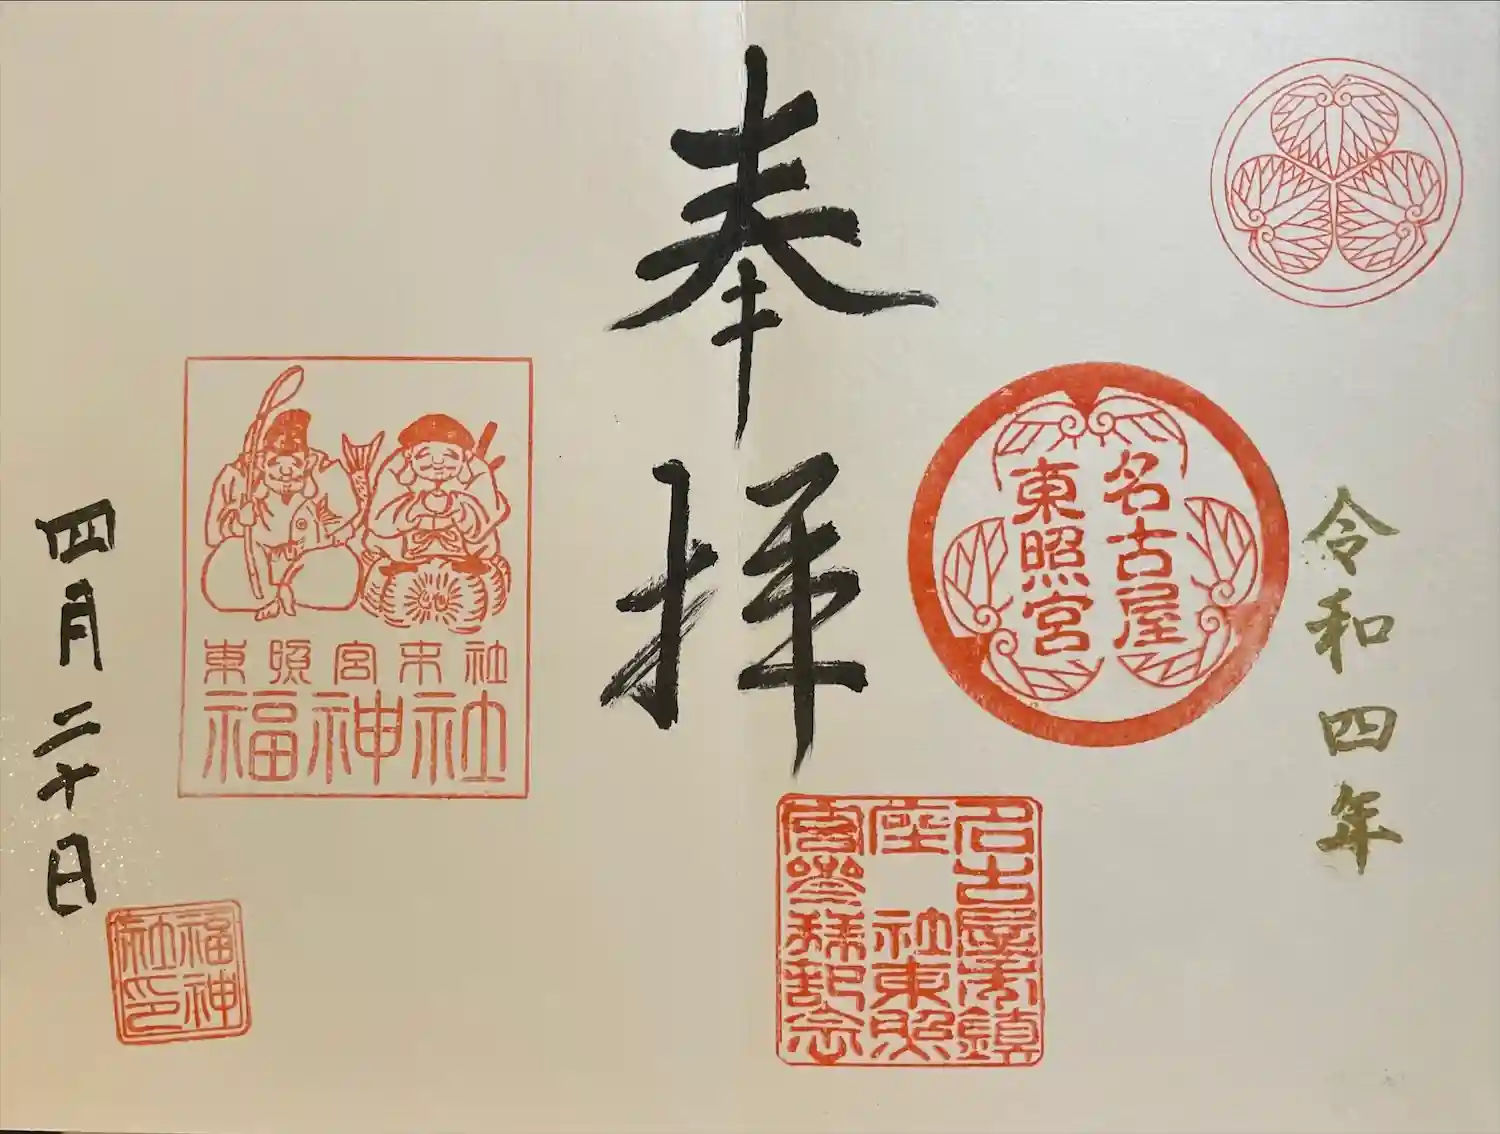 令和四年
名古屋
東照宮
奉拝
名古屋市鎮
座 社東照
宮参拝記念
東照宮末社
福神社
四月二十日
福神
社印